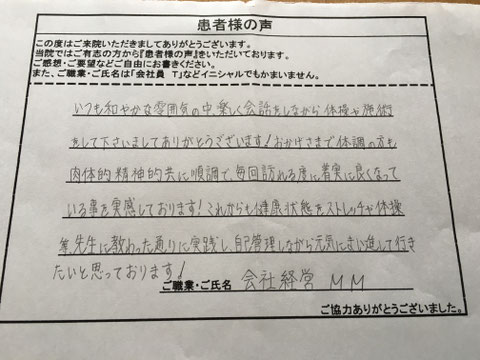 患者様の声
この度はご来院いただきましてありがとうございます。
当院ではご有志の方から『患者様の声』をいただいております。
ご感想・ご要望などご自由にお書きください。
また、ご職業・ご氏名は「会社員　T」などイニシャルでもかまいません。
いつも和やかな雰囲気の中、楽しく会話をしながら体操や施術
をして下さいましてありがとうございます！おかげさまで体調の方も
肉体的精神的共に順調で、毎回訪れる度に着実に良くなって
いる事を実感しております！これからも健康状態をストレッチや体操
等先生に教わった通りに実践し、自己管理しながら元気にまい進して行き
たいと思っております！
ご職業・ご氏名　会社経営　MM
ご協力ありがとうございました。